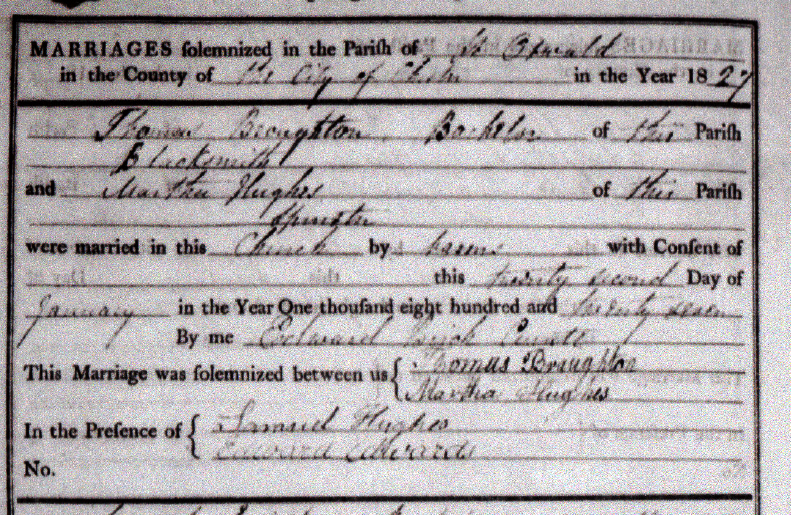 MARRIAGES solemnized in the Parish of St. Oswald
in the County of the City of Chester in the Year 1827
Thomas Broughton Bachelor of this Parish
Blacksmith
and Martha Hughes of this Parish
Spinster
were married in this Church by banns with Consent of
this twenty second Day of
January in the Year One thousand eight hundred and twenty seven
By me Edward Curate
This Marriage was solemnized between us { Thomas Broughton
Martha Hughes
In the Presence of { Samuel Hughes
Edward Edwards
No.